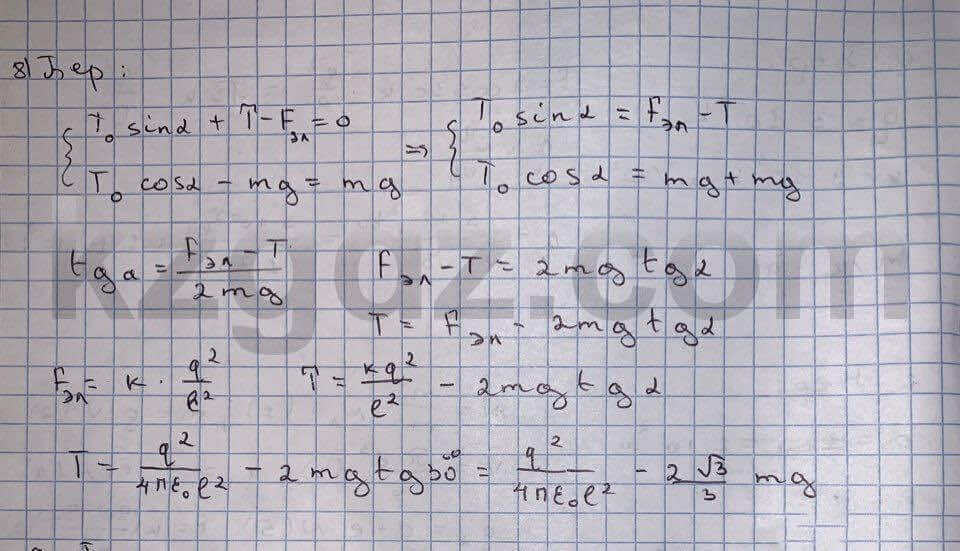 8) Бер:
{ T₀ sinα + T - Fэл = 0 ⇒ { T₀ sinα = Fэл - T
T₀ cosα - mg = mg T₀ cosα = mg + mg
tg a = (Fэл - T)/(2mg) Fэл - T = 2mg tg α
T = Fэл - 2mg tg α
Fэл = k · q²/ℓ² T = kq²/ℓ² - 2mg tg α
T = q²/(4πε₀ℓ²) - 2 mg tg 30° = q²/(4πε₀ℓ²) - 2√3/3 mg
kzgdz.com